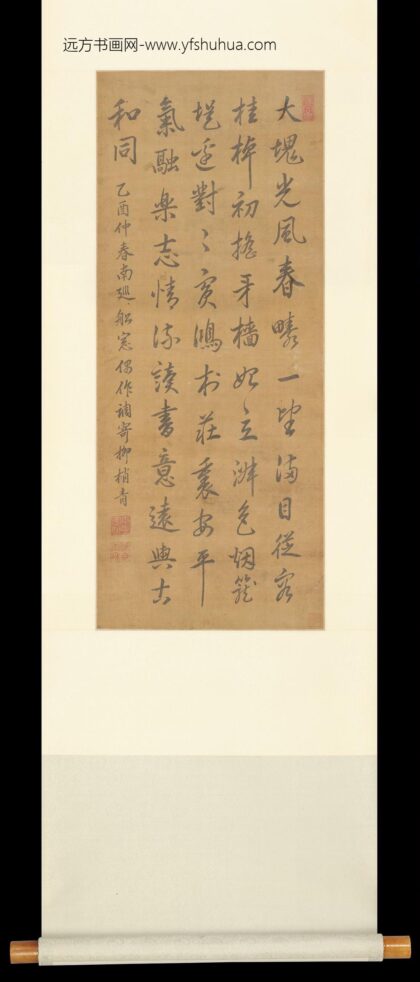 远方书画网-www.yfshuhua.com
大塊光風春疇一望滿目從容
桂棹初搖牙檣始立淑色烟籠
堤邊對〻賓鴻村莊裏安平
氣融樂志情深讀書意遠與古
和同
乙酉仲春南廵船窓偶作調寄柳梢青